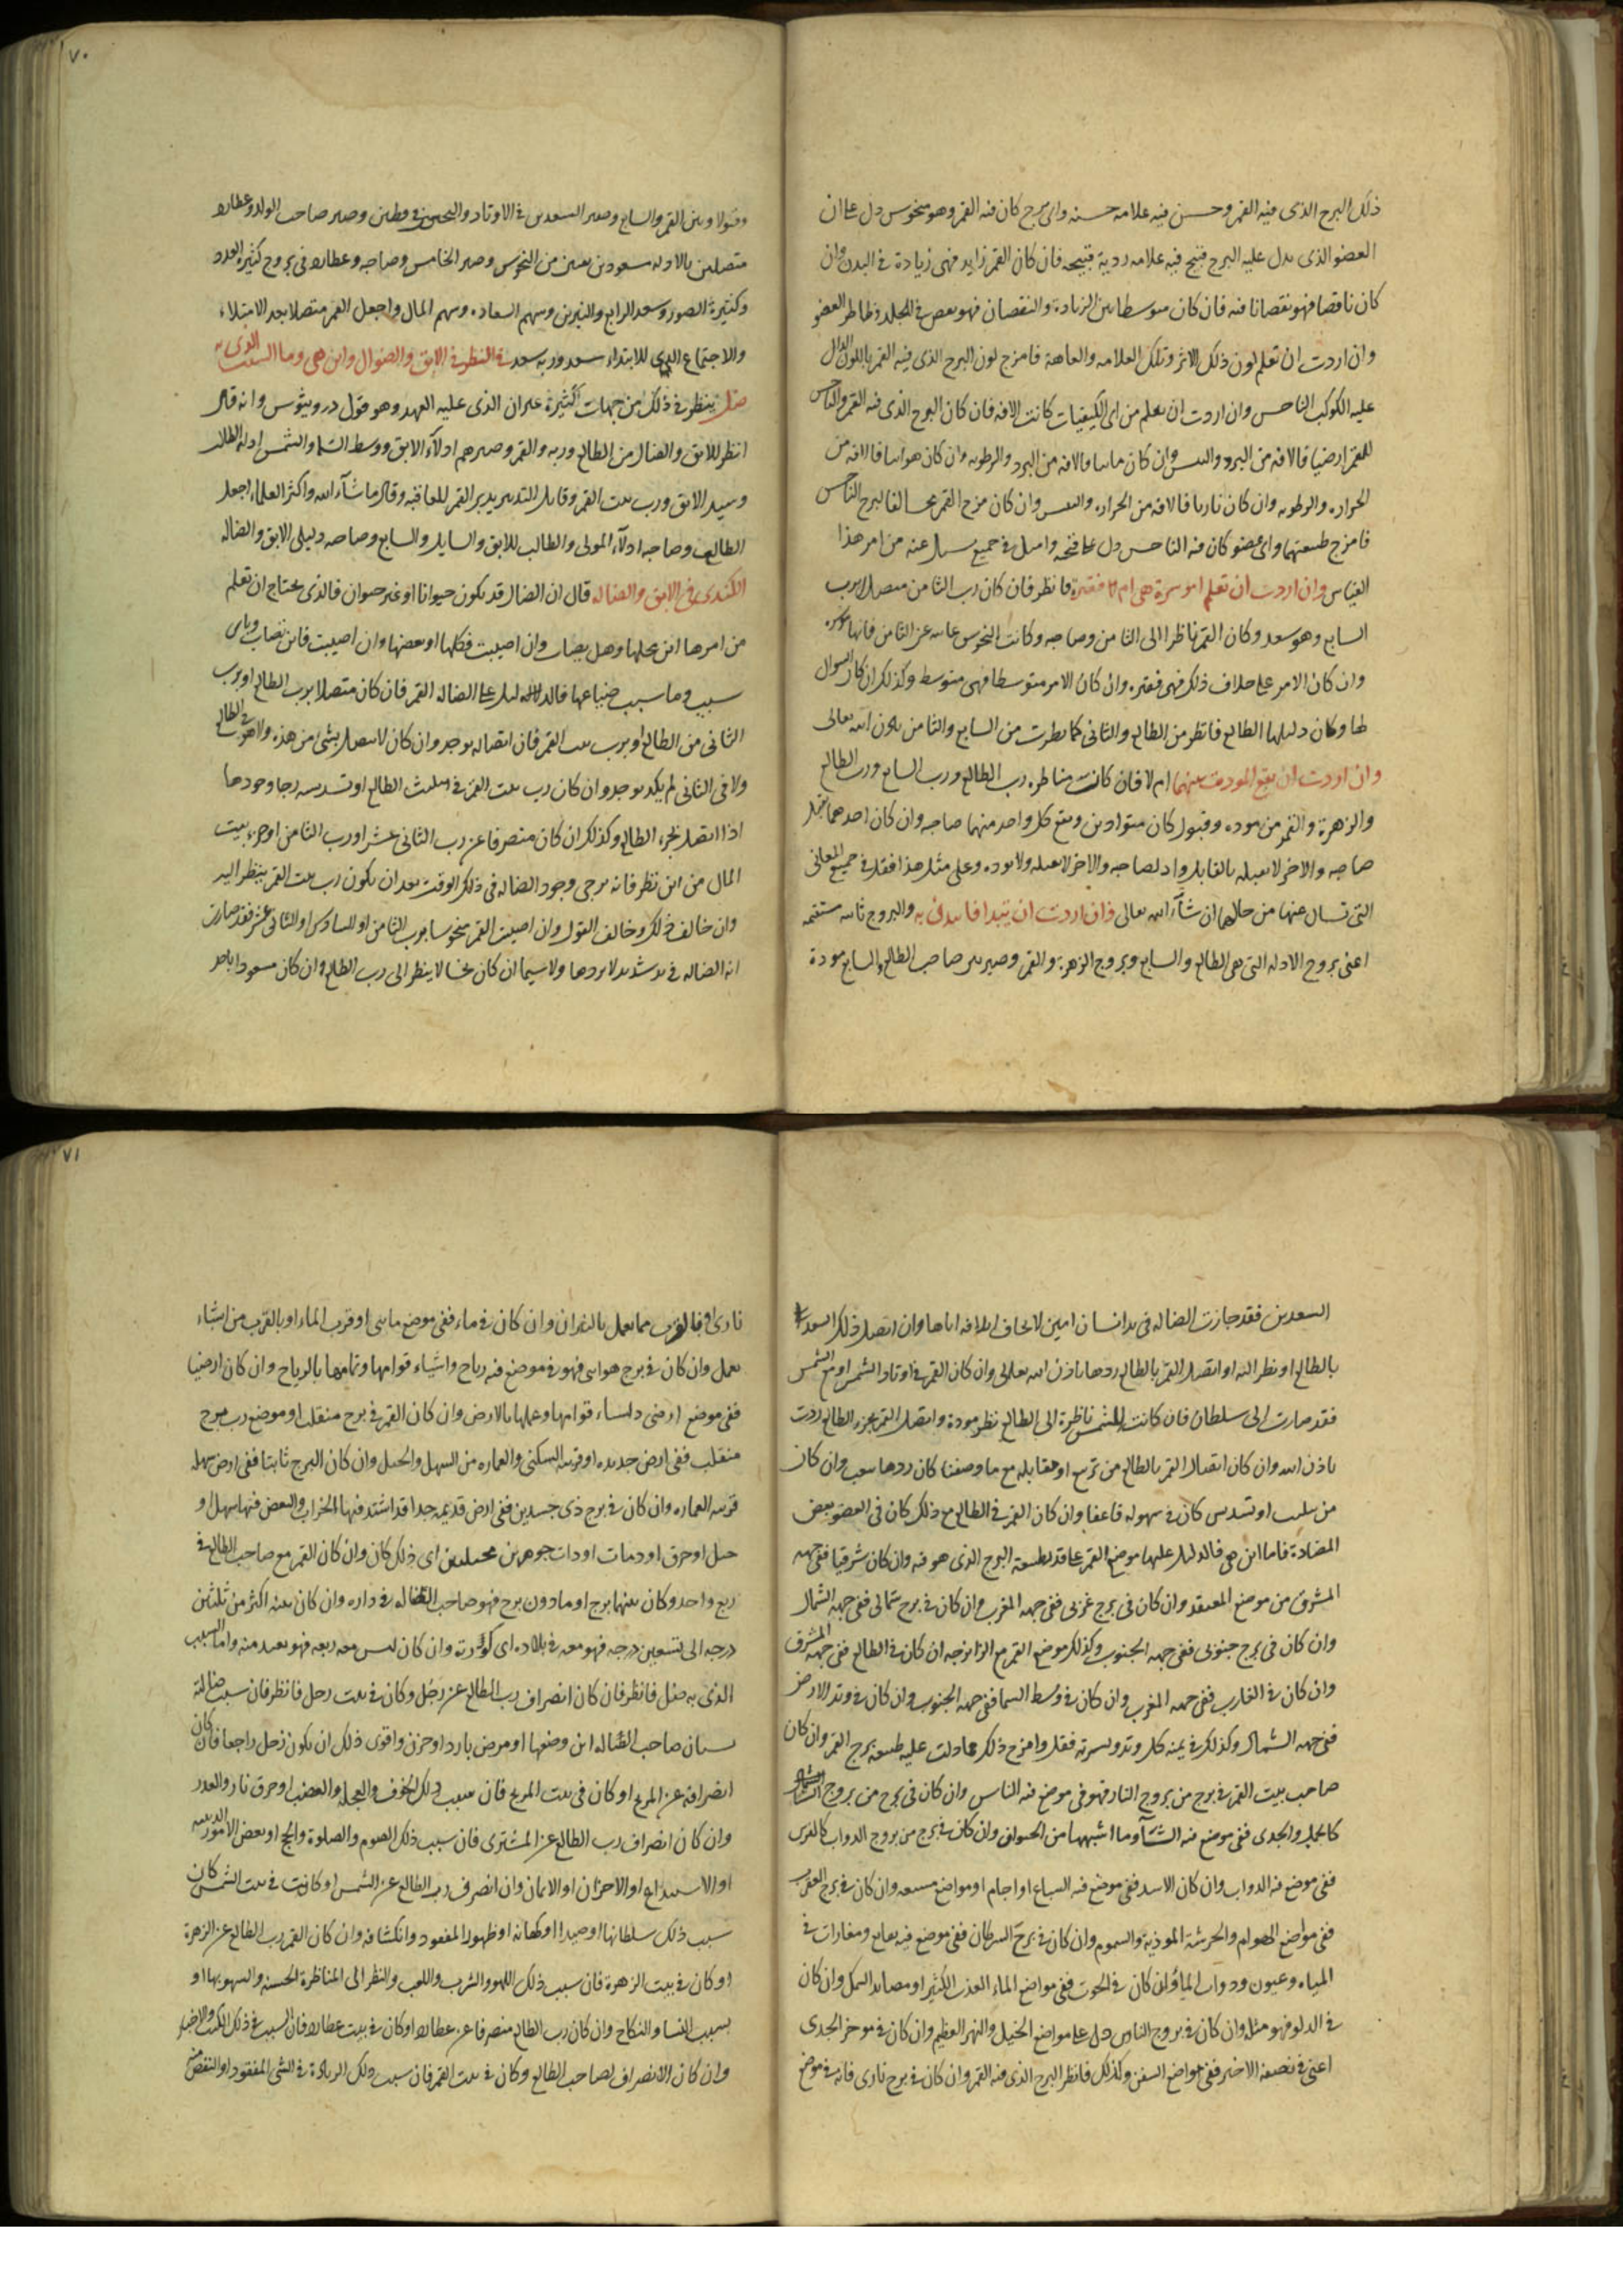 ذلك البرج الذى فيه القمر وحسن فيه علامه حسنه واى برج كان فيه القمر وهو منحوس دل على ان
العضو الذى يدل عليه البرج قبيح فيه علامه ردية قبيحه فان كان القمر زايد فهى زيادة فى البدن وان
كان ناقصا فهو نقصانا فيه فان كان متوسطا بين الزياده والنقصان فهو بعض فى الجلد وظاهر العضو
وان اردت ان تعلم لون ذلك الاثر وتلك العلامه والعاهة فامزج لون البرج الذى فيه القمر باللون الدال
عليه الكوكب الناحس وان اردت ان تعلم من اى الكيفيات كانت الافه فان كان البرج الذى فيه القمر والناحس
للقمر ارضيا فالافه من البرد واليبس وان كان مائيا فالافه من البرد والرطوبه وان كان هوائيا فالافه من
الحراره والرطوبه وان كان ناريا فالافه من الحراره واليبس وان كان برج القمر مخالفا لبرج الناحس
فامزج طبيعتهما واى عضو كان فيه الناحس دل على قبحه وامثل فى جميع ما يسال عنه من امر هذا
القياس وان اردت ان تعلم اموسرة هى ام لا فقيرة فانظر فان كان رب الثامن متصلا برب
السابع وهو سعد وكان القمر ناظرا الى الثامن وصاحبه وكانت النحوس غائبه عن الثامن فانها موسره
وان كان الامر على خلاف ذلك فهى فقيره وان كان الامر متوسطا فهى متوسط وكذلك ان كان السوال
لها وكان دليلها الطالع فانظر من الطالع والثانى كما نظرت من السابع والثامن باذن الله تعالى
وان اردت ان تقع المودت بينهما ام لا فان كانت مناظره رب الطالع ورب السابع ورب الطالع
والزهرة والقمر من موده وقبول كان متوادين ومتع كل واحد منهما صاحبه وان كان احدهما يقبل
صاحبه والاخر لا يقبله فالقابل واد لصاحبه والاخر لا يقبله ولا يوده وعلى مثل هذا فقل فى جميع المعانى
التى تسال عنها من حالهما ان شآء الله تعالى فان اردت ان تبتدا فابتدئ به والبروج ثابته مستقيمه
اعنى بروج الادله التى هى الطالع والسابع وبروج الزهرة والقمر وصير بين صاحب الطالع والسابع مودة
وقبولا وبين القمر والسابع وصير السعدين فى الاوتاد والنحسين وصير صاحب الولد وعطارد
متصلين بالادله مسعودين نقيين من النحوس وصير الخامس وصاحبه وعطارد فى بروج كثيرة العدد
وكثيرة الصور وسعد الرابع والنيرين وسهم السعاده وسهم المال واجعل القمر متصلا بعد الامتلاء
والاجتماع للابتداء بسعد وربه سعد فى النظر فى الابق والضوال واين هى وما السبب الذى به
ضل ينظر فى ذلك من جهات كثيرة غير ان الذى عليه العهد وهو قول دروثيوس وانه قال
انظر للابق والضال من الطالع وربه والقمر وصيرهم ادلآء الابق ووسط السما والشمس ادله الطالب
وسيد الابق ورب بيت القمر وقابل التدبير بدبر القمر للعاقبه وقال ما شآء الله واكثر العلماء اجعل
الطالع وصاحبه ادلآء المولى والطالب للابق والسايل والسابع وصاحبه دليلى الابق والضاله
الكندى فى الابق والضاله قال ان الضال قد يكون حيوانا او غير حيوان فالذى يحتاج ان تعلم
من امرها اين محلها وهل يصاب وان اصيبت فكلها او بعضها وان اصيبت فاين تصاب وباى
سبب وما سبب ضياعها فالدليل على الضاله القمر فان كان متصلا برب الطالع او برب
الثانى من الطالع او برب بيت القمر فان اتصاله يوجد وان كان لا يتصل بشئ من هذه ولا هو فى الطالع
ولا فى الثانى لم يكد يوجد وان كان رب بيت القمر فى مثلث الطالع او تسديسه رجا وجودها
اذا اتصل بجزء الطالع وكذلك ان كان منصرفا عن رب الثانى عشر او رب الثامن او جزء بيت
المال من اين نظر فانه يرجى وجود الضاله فى ذلك الوقت بعد ان يكون رب بيت القمر ينظر اليه
وان خالف ذلك وخالف القول وان اصيبت القمر منحوسا برب الثامن او السادس او الثانى عشر فقد صارت
الضاله فى يد شديد لا يردها ولا سيما ان كان نحسا لا ينظر الى رب الطالع وان كان مسعودا باحد
السعدين فقد حازت الضاله فى يد انسان امين لا يخاف اتلافه اياها وان اتصل ذلك السعد
بالطالع او نظر اليه او اتصل القمر بالطالع ردها باذن الله تعالى وان كان القمر فى اوتاد الشمس او مع الشمس
فقد صارت الى سلطان فان كانت الشمس ناظرة الى الطالع نظر مودة واتصل القمر بجزء الطالع ردت
باذن الله وان كان اتصال القمر بالطالع من تربيع او مقابله مع ما وصفنا كان ردها بتعب وان كان
من تثليث او تسديس كان فى سهوله فاعفا وان كان القمر فى الطالع مع ذلك كان فى العضو بعض
المضادة فاما اين هى فالدليل عليها موضع القمر على قدر طبيعة البرج الذى هو فيه وان كان شرقيا ففى جهه
المشرق من موضع المفتقد وان كان فى برج غربى ففى جهه المغرب وان كان فى برج شمالى ففى جهه الشمال
وان كان فى برج جنوبى ففى جهه الجنوب وكذلك موضع القمر مع الزايرجه ان كان فى الطالع ففى جهه المشرق
وان كان فى الغارب ففى جهه المغرب وان كان فى وسط السما ففى جهه الجنوب وان كان فى وتد الارض
ففى جهه الشمال وكذلك فى يمنه كل وتد ويسرته فقل وامزج ذلك بما دلت عليه طبيعه برج القمر وان كان
صاحب بيت القمر فى برج من بروج النار فهو فى موضع فيه الناس وان كان فى برج من بروج الشاء
كالحمل والجدى ففى موضع فيه الشآء وما اشبهها من الحيوان وان كان فى برج من بروج الدواب كالفرس
ففى موضع فيه الدواب وان كان الاسد ففى موضع فيه السباع او اجام او مواضع مسبعه وان كان فى برج العقرب
ففى مواضع الهوام والحرشة الموذية والسموم وان كان فى برج السرطان ففى موضع فيه يعابع ومغارات فى
المياه وعيون ودواب الماء وان كان فى الحوت ففى مواضع الماء العذب الكثير او مصايد السمك وان كان
فى الدلو فهو مثله وان كان فى بروج الناس دل على مواضع الخيل والنهر العظيم وان كان فى موخر الجدى
اعنى فى نصفه الاخير ففى مواضع السفن وكذلك فانظر البرج الذى فيه القمر وان كان فى برج نارى فانه فى موضع
نارى او فالقرب مما يعمل بالنيران وان كان فى ماء ففى موضع مائى او قرب الماء او بالقرب من اشياء
تعمل وان كان فى برج هوائى فهو فى موضع فيه رياح واشياء قوامها وتمامها بالرياح وان كان ارضيا
ففى موضع ارضى واشياء قوامها وعملها بالارض وان كان القمر فى برج منقلب او موضع رب برج
منقلب ففى ارض جديده او قريبه السكنى والعماره من السهل والجبل وان كان البرج ثابتا ففى ارض سهله
قريبه العماره وان كان فى برج ذى جسدين ففى ارض قديمه جدا قد اشتد فيها الخراب والبعض فيها سهل او
جبل او حرق او دمات او ذات جوهرين مختلفين اى ذلك كان وان كان القمر مع صاحب الطالع فى
ربع واحد وكان بينهما برج او ما دون برج فهو صاحب الضاله فى داره وان كان بينه اكثر من ثلثين
درجه الى تسعين درجه فهو معه فى بلاده اى كورته وان كان ليس معه ربعه فهو بعيد منه واما السبب
الذى به ضل فانظر فان كان انصراف رب الطالع عن زحل وكان فى بيت زحل فانظر فان سبب ضالته
نسيان صاحب الضاله اين وضعها او مرض بارد او حزن واقوى ذلك ان يكون زحل راجعا فان كان
انصرافه عن المريخ او كان فى بيت المريخ فان سبب ذلك الخوف والعجله والغضب او حرق نار والعدو
وان كان انصراف رب الطالع عن المشترى فان سبب ذلك الصوم والصلوة والحج او بعض الامور الدينيه
او الاستيداع او الاحزان او الايمان وان انصرف رب الطالع عن الشمس او كانت فى بيت الشمس كان
سبب ذلك سلطانها او صيدا او كهانه او ظهورا لمفقود وانكشافه وان كان القمر رب الطالع عن الزهرة
او كان فى بيت الزهرة فان سبب ذلك اللهو والشرب واللعب والنظر الى المناظرة الحسنه والسهو بها او
بسبب النسا والنكاح وان كان رب الطالع منصرفا عن عطارد او كان فى بيت عطارد فان السبب فى ذلك الكتب والاخبار
وان كان الانصراف لصاحب الطالع وكان فى بيت القمر فان سبب ذلك الزيادة فى الشى المفقود او النقص منه
٧٠
٧١